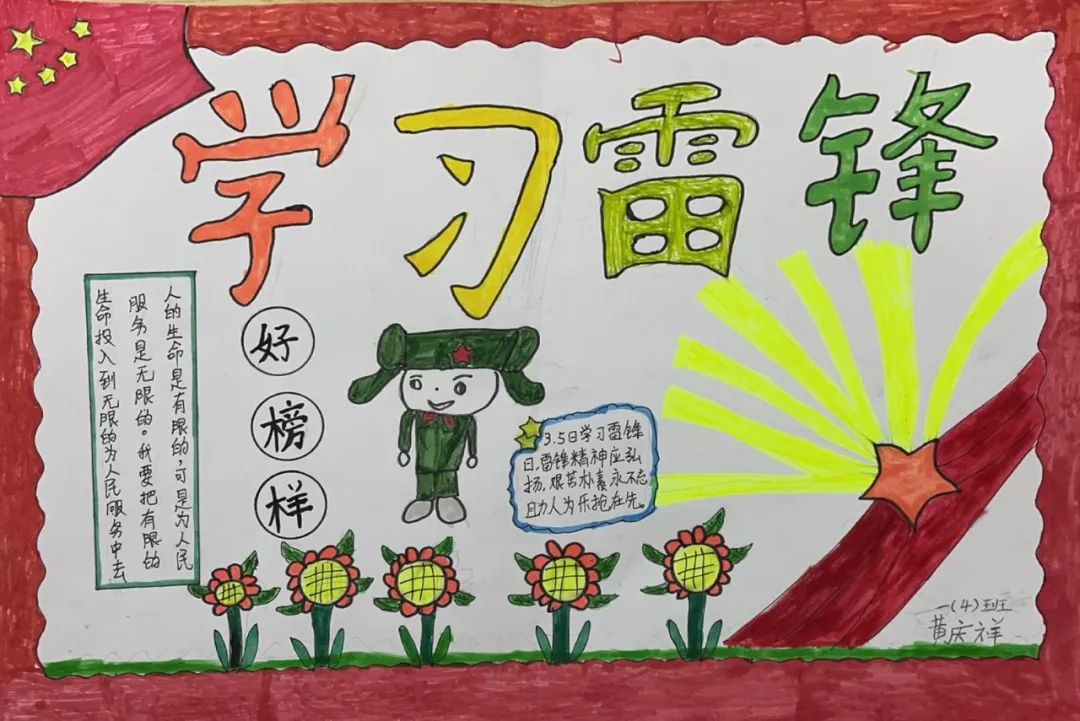 学习雷锋
好榜样
人的生命是有限的,可是为人民
服务是无限的。我要把有限的
生命投入到无限的为人民服务中去
3.5日学习雷锋
日,雷锋精神应弘
扬,艰苦朴素永不忘
助人为乐抢在先。
一(4)班
黄庆祥